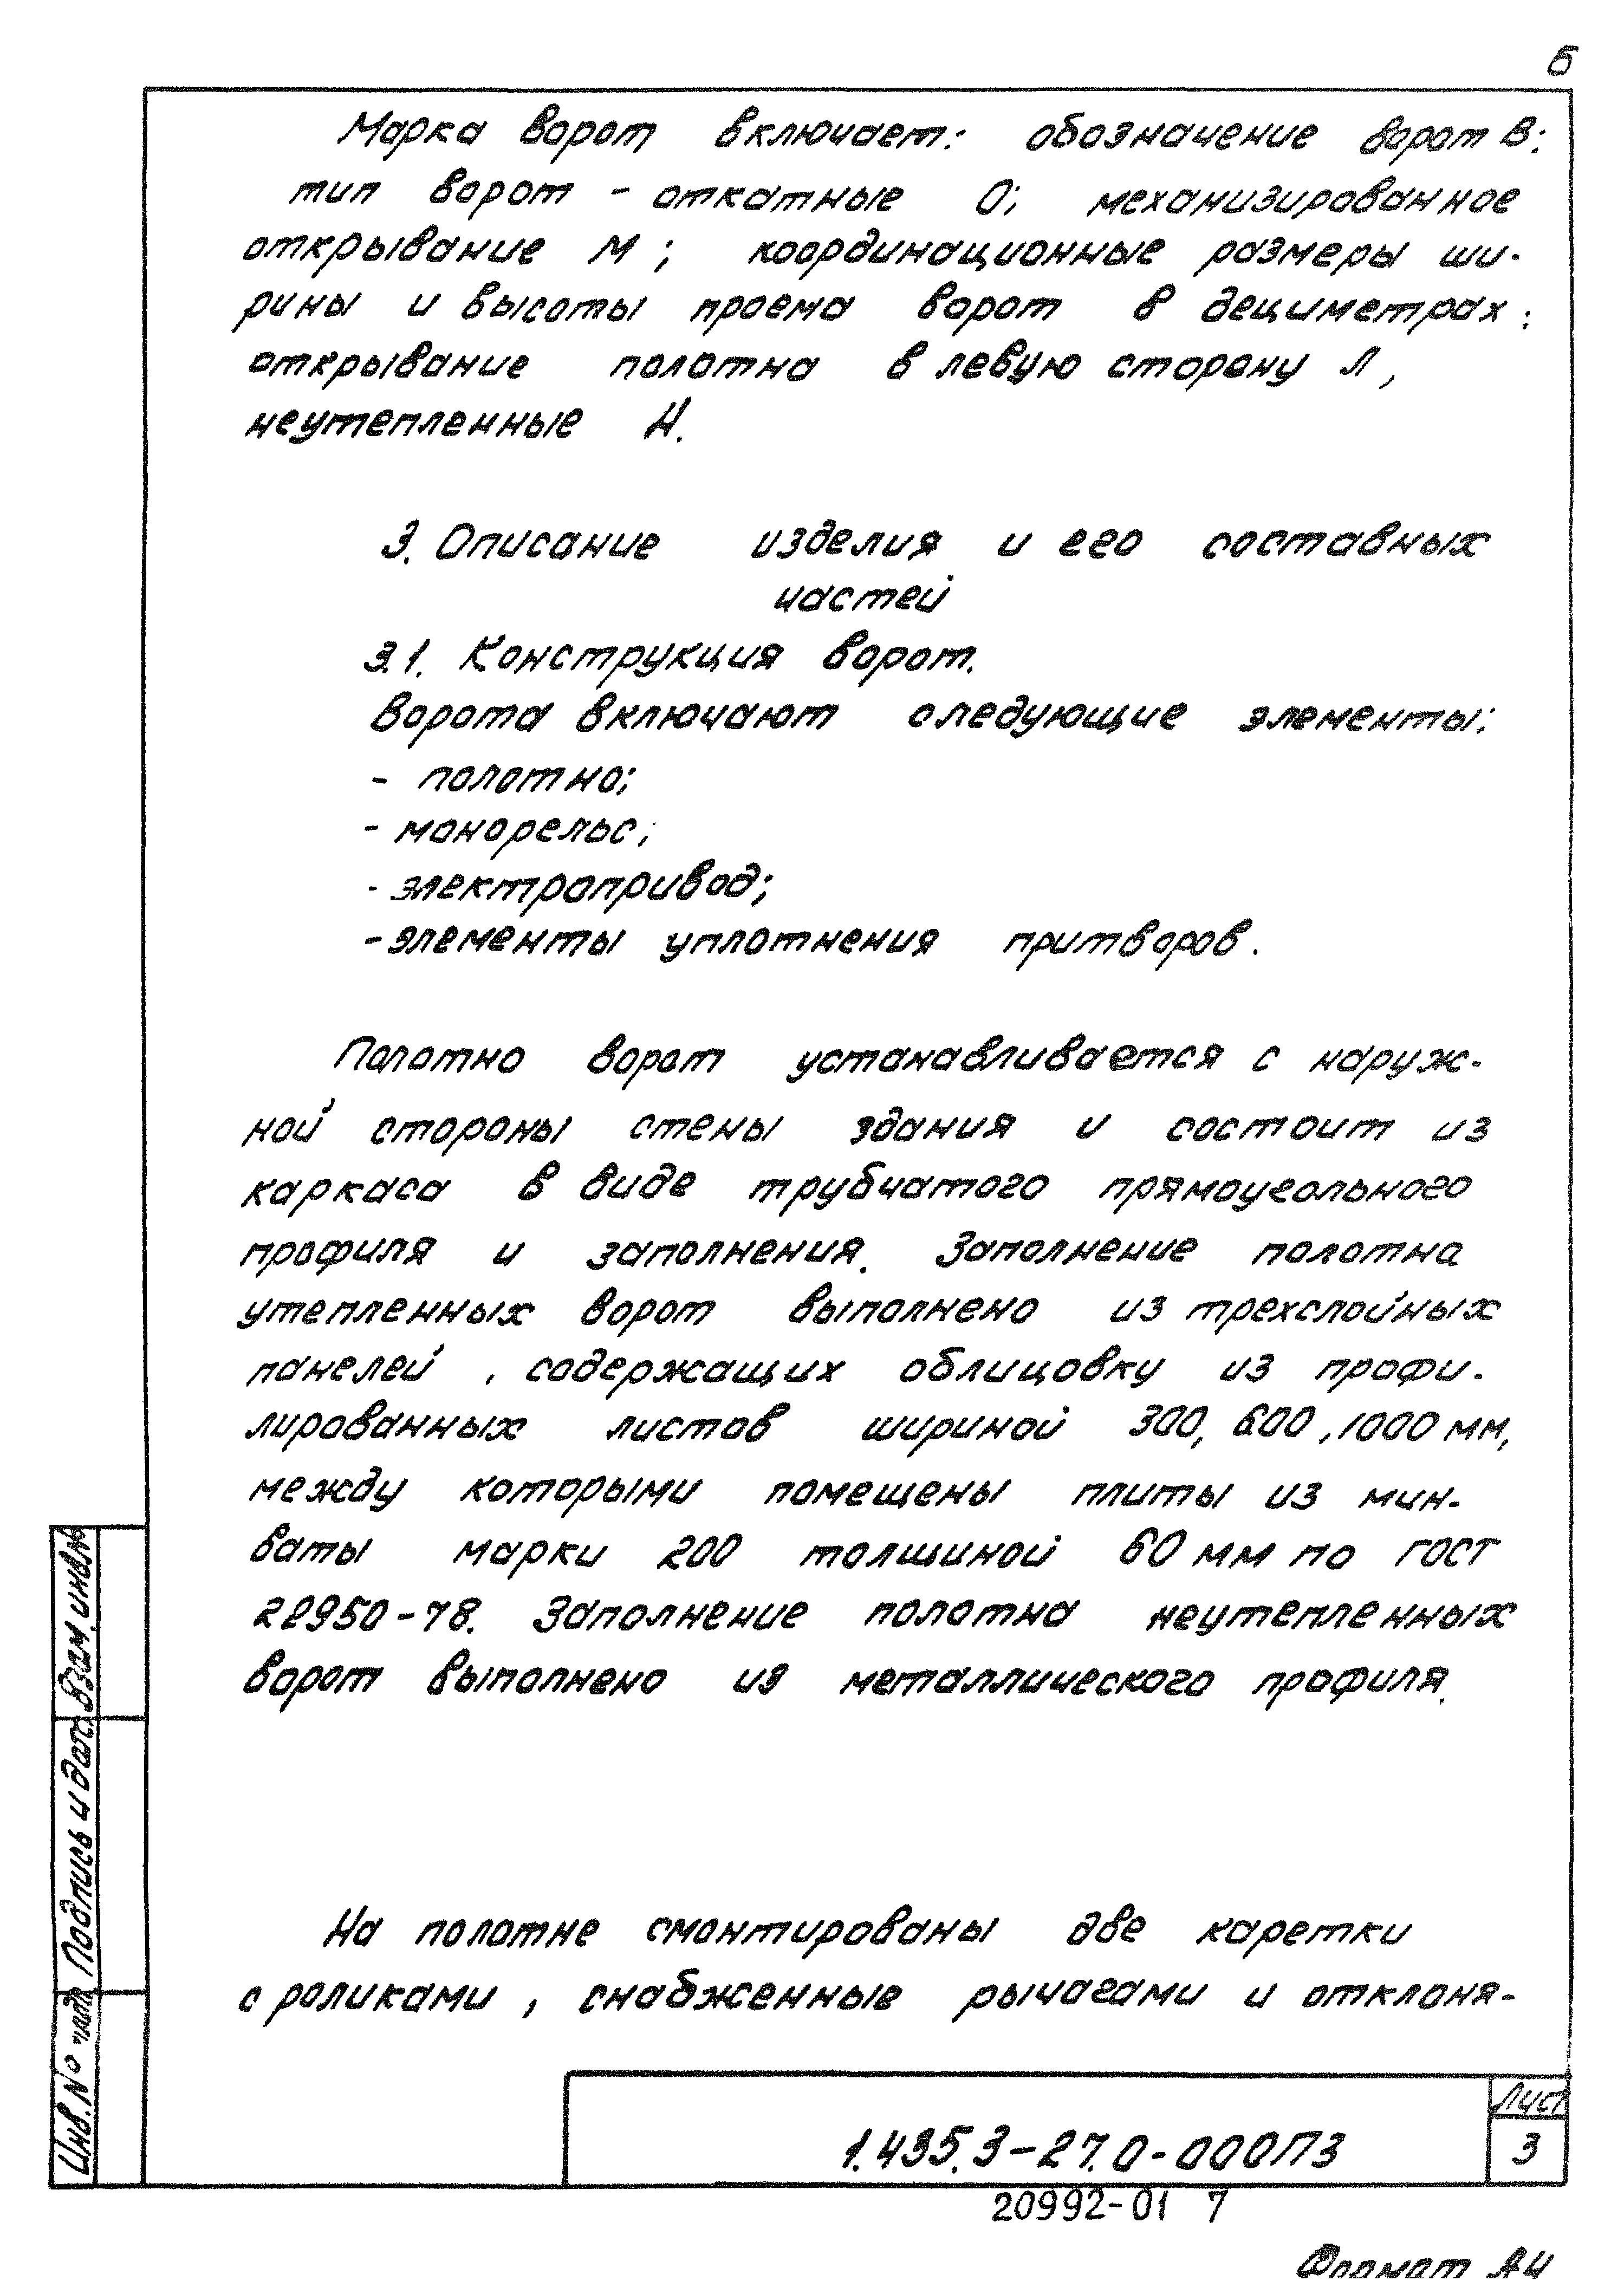 Б
Марка ворот включает: обозначение ворот В:
тип ворот - откатные О; механизированное
открывание М; координационные размеры ши-
рины и высоты проема ворот в дециметрах:
открывание полотна в левую сторону Л,
неутепленные Н.
3. Описание изделия и его составных
частей
3.1. Конструкция ворот.
Ворота включают следующие элементы:
- полотно;
- монорельс;
- электропривод;
- элементы уплотнения притворов.
Полотно ворот устанавливается с наруж-
ной стороны стены здания и состоит из
каркаса в виде трубчатого прямоугольного
профиля и заполнения. Заполнение полотна
утепленных ворот выполнено из трехслойных
панелей, содержащих облицовку из профи-
лированных листов шириной 300, 600, 1000 мм,
между которыми помещены плиты из мин-
ваты марки 200 толщиной 60 мм по ГОСТ
22950-78. Заполнение полотна неутепленных
ворот выполнено из металлического профиля.
На полотне смонтированы две каретки
с роликами, снабженные рычагами и отклоня-
Взам. инв.№
Подпись и дата
Инв. № подл
1.435.3-27.0-000ПЗ
Лист
3
20992-01 7
Формат А4